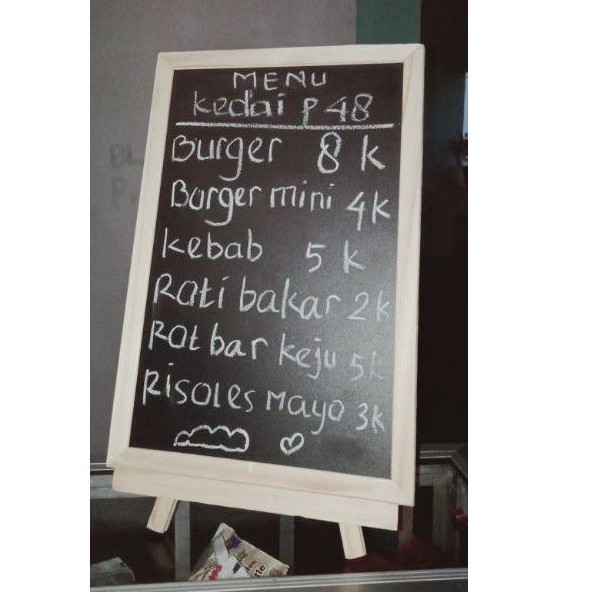 MENU
Kedai P 48
Burger 8 K
Burger mini 4K
Kebab 5 K
Roti bakar 2K
Rot bar keju 5K
Risoles Mayo 3K